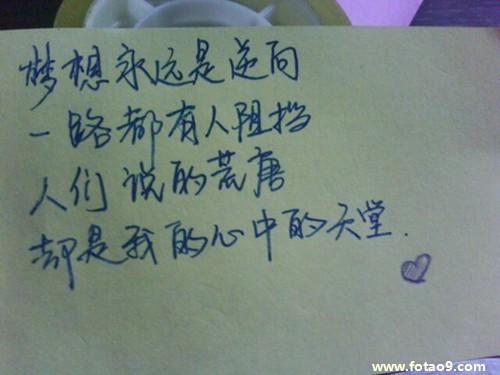 梦想永远是逆向
一路都有人阻挡
人们说的荒唐
却是我的心中的天堂.
www.fotao9.com